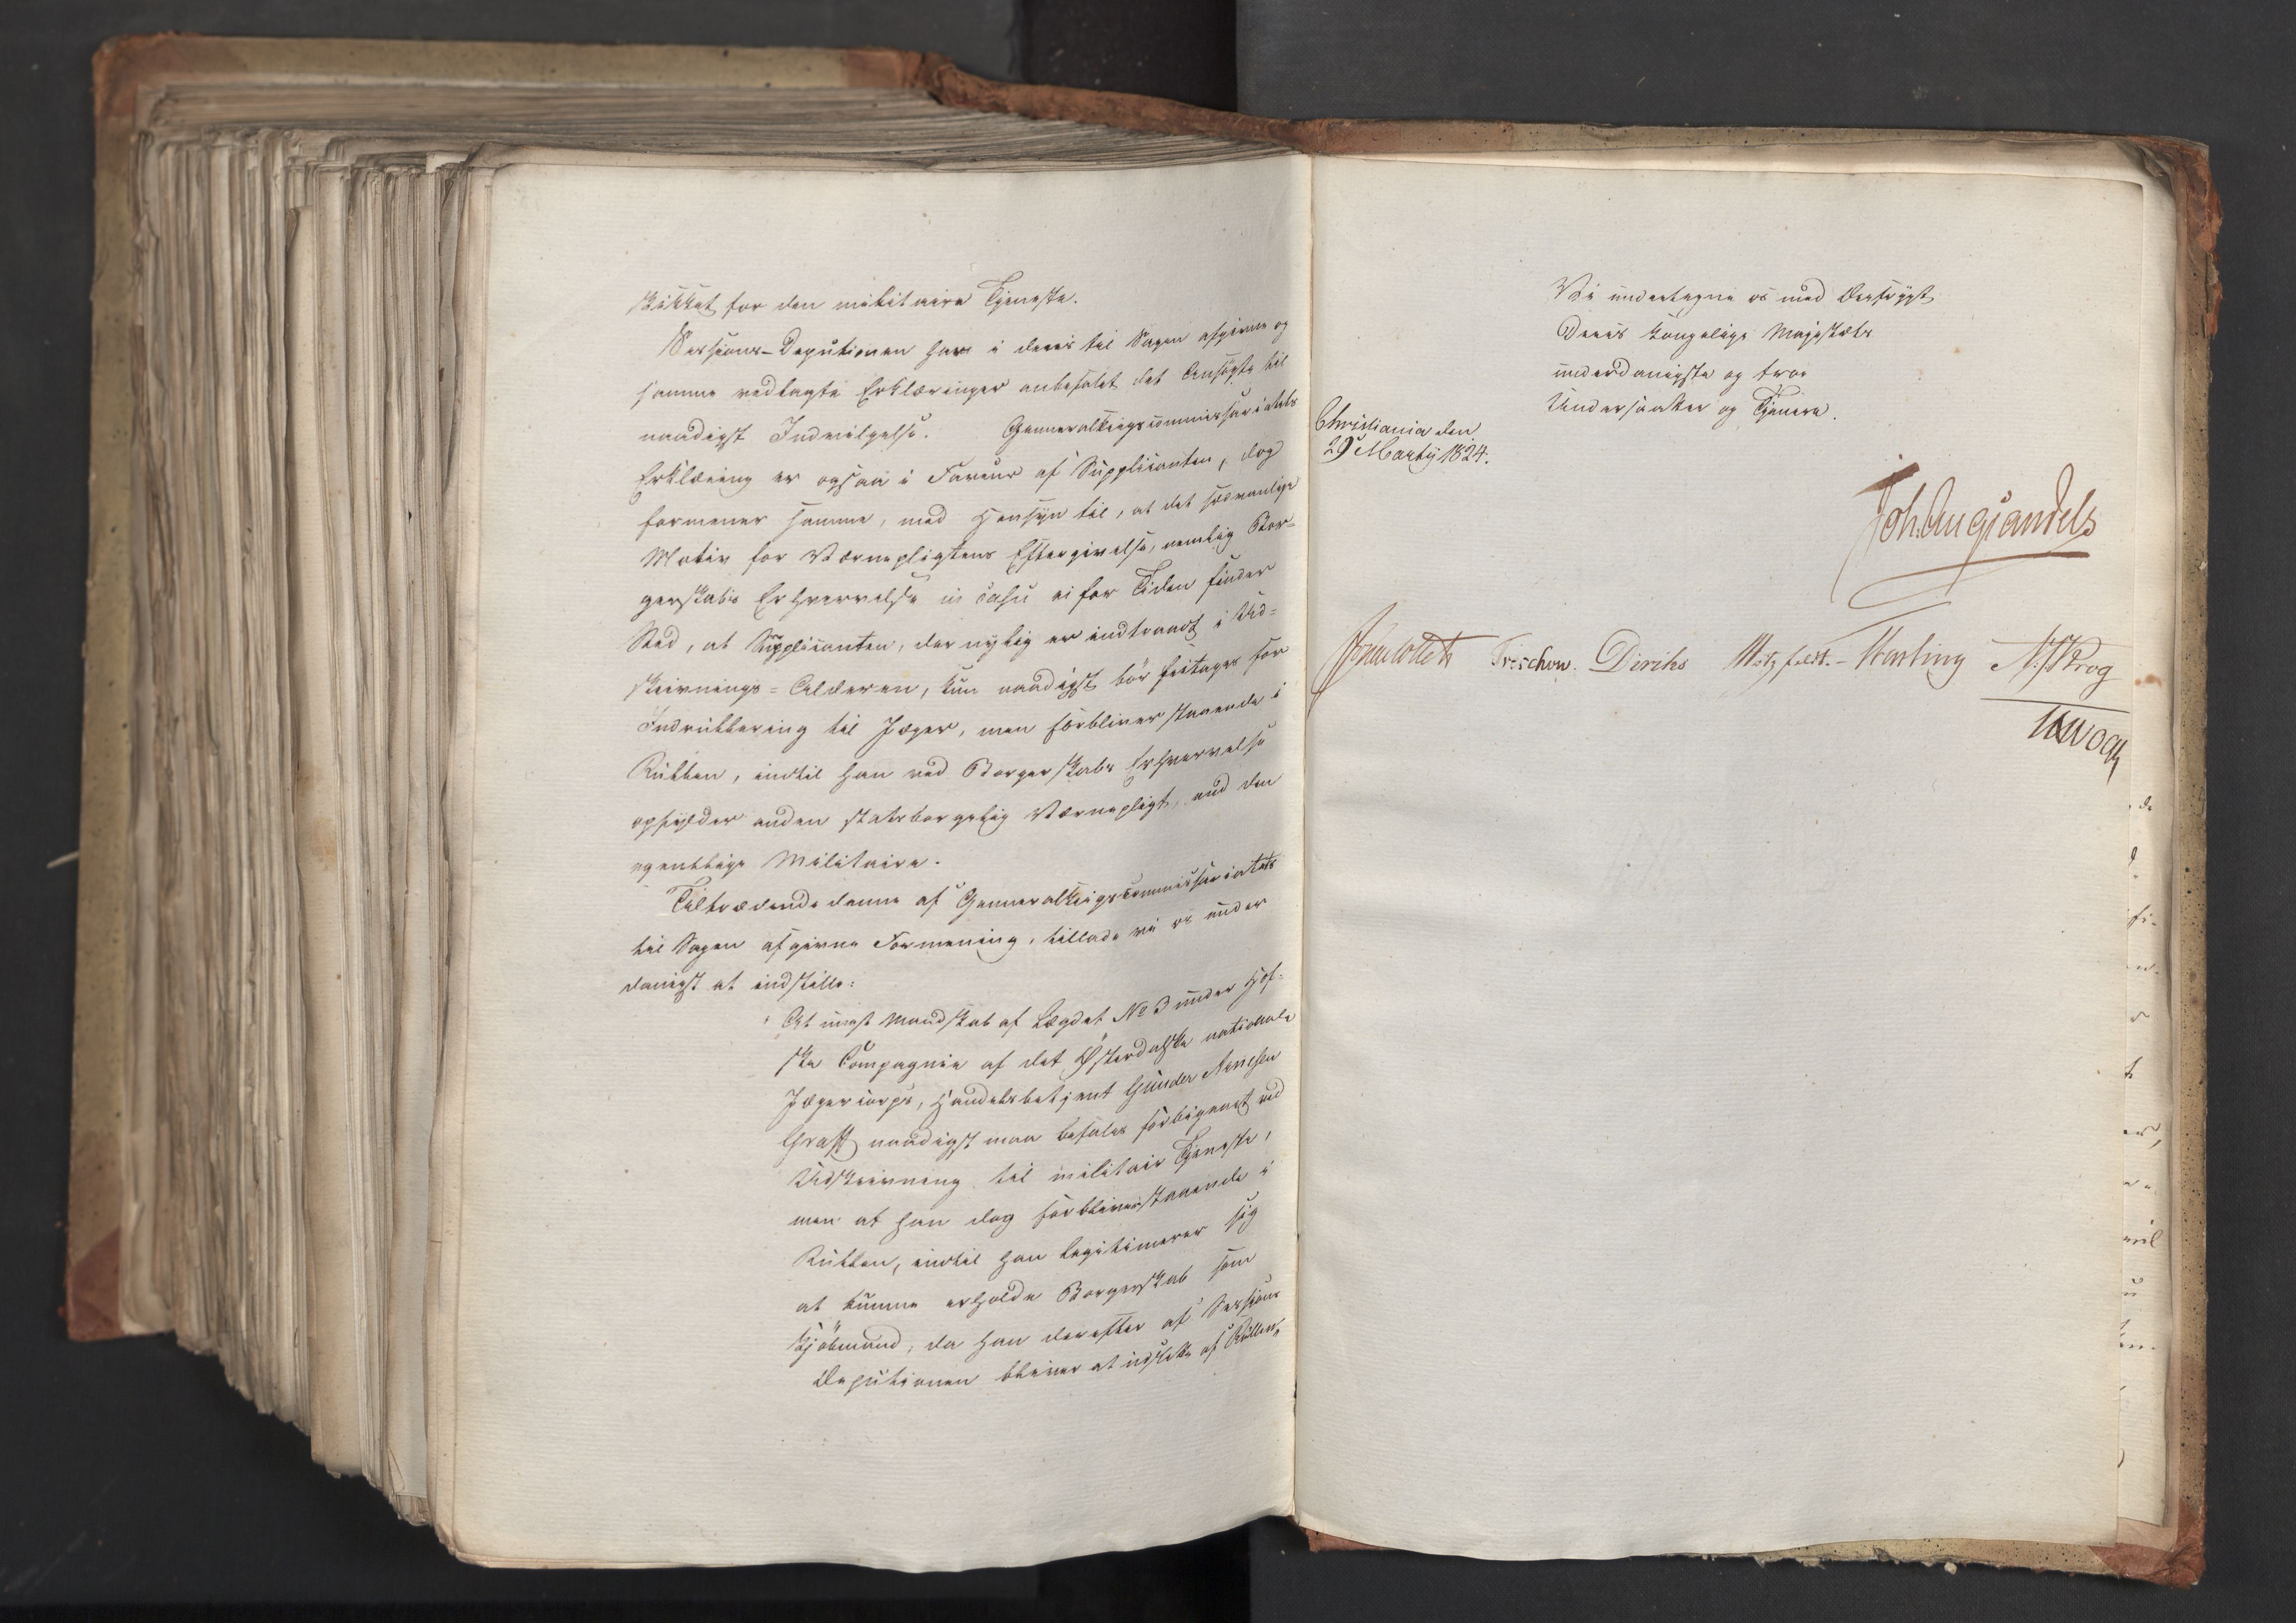 skikket for den militaire Tjeneste.
Sessions-Deputionen have i deres til Sagen afgivne og
samme vedlagte Erklæringer anbefalet det Ansøgte til
naadigst Indvilgelse. Generalkrigscommissariatets
Erklæring er ogsaa i Faveur af Supplicanten, dog
formener samme, med Hensyn til, at det sædvanlige
Motiv for Værnepligtens Eftergivelse, nemlig Bor-
gerskabs Erhvervelse in casu ei for Tiden finder
Sted, at Supplicanten, der nylig er indtraadt i Ud-
skrivnings-Alderen, kun naadigst bør fritages for
Indrullering til Jæger, men forbliver staaende i
Rullen, indtil han ved Borgerskabs Erhvervelse
opfylder anden statsborgerlig Værnepligt, end den
egentlige Militaire.
Tiltrædende denne af Generalkrigscommissariatets
til Sagen afgivne Formening, tillade vi os under
danigst at indstille:
At ungt Mandskab af Lægdet No 3 under Hof-
ske Compagnie af det Østerdalske nationale
Jægercorps, Handelsbetjent Gunder Arnesen
Graff naadigst maa befales forbigaaet ved
Udskrivning til militair Tjeneste,
men at han dog forbliver staaende i
Rullen, indtil han legitimerer sig
at kunne erholde Borgerskab som
Kjøbmand, da han derefter af Sessions
Deputionen bliver at udslette af Rullen.
Vi undertegne os med Dersrygt
Deres Kongelige Majestæts
underdanigste og troe
Undersaatter og Tjenere.
Christiania den
29 Martij 1824.
Joh. Aug. Sandels
Sommerfeldt Treschow. Diriks Motzfeldt. Hesting N. J. Krog